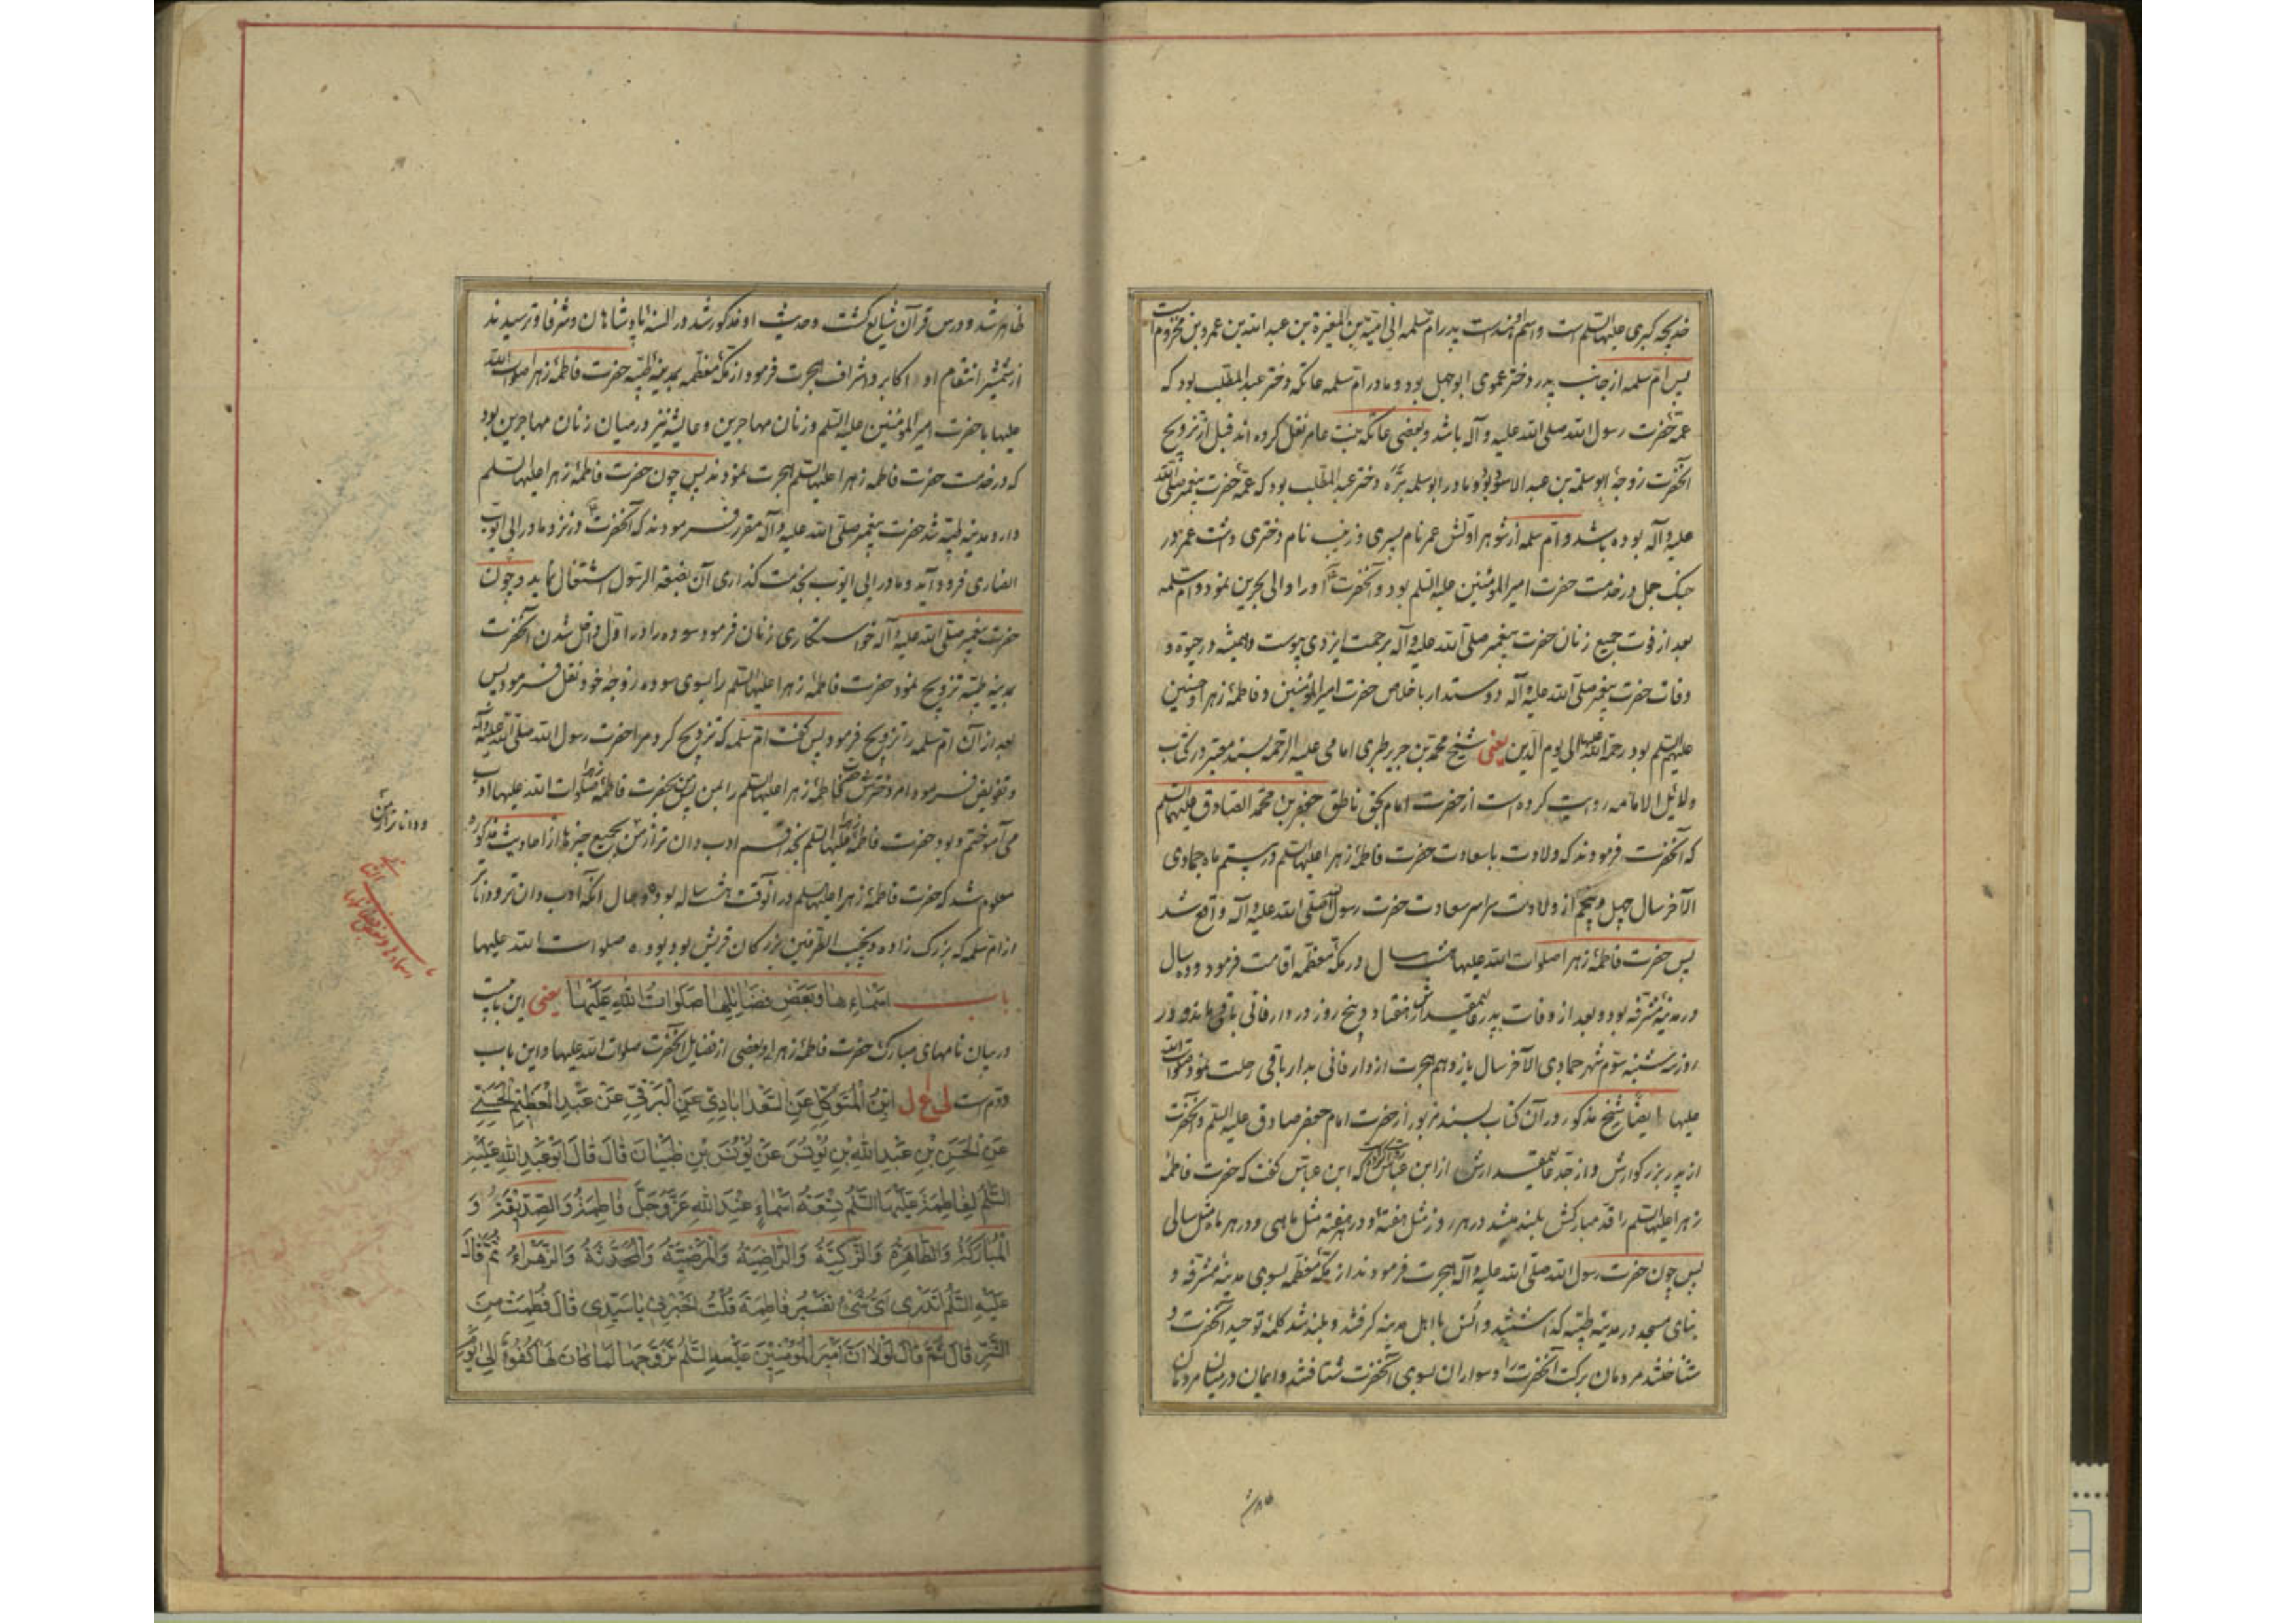 خدیجه کبری علیها السلم است و اسم او هند است پدر ام سلمه ابی امیة بن المغیرة بن عبد الله بن عمرو بن مخزوم است
پس ام سلمه از جانب پدر دختر عموی ابوجهل بود و مادر ام سلمه عاتکه دختر عبد المطلب بود که
عمهٔ حضرت رسول الله صلی الله علیه و آله باشد و بعضی عاتکه بنت عامر نقل کرده اند قبل از تزویج
آنحضرت زوجهٔ ابوسلمة بن عبد الاسد بود و مادر ابوسلمه برّه دختر عبد المطلب بود که عمهٔ حضرت پیغمبر صلی الله
علیه و آله بوده باشد و ام سلمه از شوهر اولش عمر نام پسری و زینب نام دختری داشت عمر در
جنک جمل در خدمت حضرت امیر المؤمنین علیه السلم بود و آنحضرت ع او را والی بحرین نمود و ام سلمه
بعد از فوت جمیع زنان حضرت پیغمبر صلی الله علیه و آله برحمت ایزدی پیوست و همیشه در حیوة و
وفات حضرت پیغمبر صلی الله علیه و آله دوستدار باخلاص حضرت امیر المؤمنین و فاطمهٔ زهرا و حسنین
علیهم السلم بود رحمة الله علیها الی یوم الدین یعنی شیخ محمد بن جریر طبری امامی علیه الرحمه بسند معتبر در کتاب
دلائل الامامه روایت کرده است از حضرت امام بحق ناطق جعفر بن محمد الصادق علیهما السلم
که آنحضرت فرمودند که ولادت باسعادت حضرت فاطمهٔ زهرا علیها السلم در بیستم ماه جمادی
الآخر سال چهل و پنجم از ولادت سراسر سعادت حضرت رسول الله صلی الله علیه و آله واقع شد
پس حضرت فاطمهٔ زهرا صلوات الله علیها هشت سال در مکهٔ معظمه اقامت فرمود و ده سال
در مدینهٔ مشرفه بود و بعد از وفات پدر عالیمقدارش هفتاد و پنج روز در دار فانی باقی ماند و در
روز سه شنبه سوم شهر جمادی الآخر سال یازدهم هجرت از دار فانی بدار باقی رحلت نمود صلوات الله
علیها ایضا شیخ مذکور در آن کتاب بسند مزبور از حضرت امام جعفر صادق علیه السلم و آنحضرت
از پدر بزرکوارش و از جد عالیمقدارش از ابن عباس روایت کرده است که ابن عباس کفت که حضرت فاطمهٔ
زهرا علیها السلم را قد مبارکش بلند میشد در هر روز مثل هفتهٔ و در هر هفته مثل ماهی و در هر ماه مثل سالی
پس چون حضرت رسول الله صلی الله علیه و آله هجرت فرمودند از مکهٔ معظمه بسوی مدینهٔ مشرفه و
بنای مسجد در مدینهٔ طیبه کذاشتند و انس با اهل مدینه کرفتند و بلند شد کلمهٔ توحید آنحضرت و
شناختند مردمان برکت آنحضرت را و سواران بسوی آنحضرت شتافتند و ایمان در میان مردمان
ظاهر شد
ظاهر شد و درس قرآن شایع کشت و حدیث او مذکور شد در السنه و پادشاهان و شرفا و ترسیدند
از شمشیر انتقام او اکابر و اشراف هجرت فرمود از مکهٔ معظمه بمدینهٔ طیبه حضرت فاطمهٔ زهرا صلوات الله
علیها با حضرت امیر المؤمنین علیه السلم و زنان مهاجرین و عایشه نیز در میان زنان مهاجرین بود
که در خدمت حضرت فاطمه زهرا علیها السلم هجرت نمودند پس چون حضرت فاطمهٔ زهرا علیها السلم
وارد مدینهٔ طیبه شد حضرت پیغمبر صلی الله علیه و آله مقرر فرمودند که آنحضرت ع در نزد مادر ابی ایوب
انصاری فرود آید و مادر ابی ایوب بخدمت کذاری آن بضعة الرسول اشتغال نماید و چون
حضرت پیغمبر صلی الله علیه و آله خواستکاری زنان فرمود سوده را در اول داخل شدن آنحضرت
بمدینه طیبه تزویج نمود حضرت فاطمهٔ زهرا علیها السلم را بسوی سوده زوجهٔ خود نقل فرمود پس
بعد از آن ام سلمه را تزویج فرمود پس کفت ام سلمه که تزویج کرد مرا حضرت رسول الله صلی الله علیه و آله
و تفویض فرمود امر دخترش حضرت فاطمهٔ زهرا علیها السلم را بمن پس من بحضرت فاطمهٔ زهرا صلوات الله علیها ادب
می آموختم و بود حضرت فاطمهٔ زهرا علیها السلم بخدا قسم ادب دان تر از من بجمیع چیزها از احادیث مذکور
معلوم شد که حضرت فاطمهٔ زهرا علیها السلم در آنوقت هشت ساله بوده و حال آنکه ادب دان تر و داناتر
از ام سلمه که بزرک زاده و نجیب الطرفین بزرکان قریش بود بوده صلوات الله علیها
باب اَسْمَاءِهَا وَبَعْضِ فَضَایِلِهَا صَلَوٰاتُ اللهِ عَلَیْهٰا یعنی این بابیست
در بیان نامهای مبارک حضرت فاطمهٔ زهرا و بعضی از فضایل آنحضرت صلوات الله علیها و این باب
دوم است لی ع ل اِبْنُ الْمُتَوَکِّلِ عَنِ السَّعْدابٰادِیِّ عَنِ الْبَرْقِیِّ عَنْ عَبْدِ الْعَظِیْمِ الْحَسَنِیِّ
عَنِ الْحَسَنِ بْنِ عَبْدِ اللهِ بْنِ یُوْنُسَ عَنْ یُوْنُسَ بْنِ ظَبْیٰانَ قٰالَ قٰالَ اَبُوْ عَبْدِ اللهِ عَلَیْهِ
السَّلٰمُ لِفٰاطِمَةَ عَلَیْهَا السَّلٰمُ تِسْعَةُ اَسْمٰاءٍ عِنْدَ اللهِ عَزَّ وَجَلَّ فٰاطِمَةُ وَالصِّدِّیْقَةُ وَ
الْمُبٰارَکَةُ وَالطّٰاهِرَةُ وَالزَّکِیَّةُ وَالرّٰاضِیَةُ وَالْمَرْضِیَّةُ وَالْمُحَدَّثَةُ وَالزَّهْرٰاءُ ثُمَّ قٰالَ
عَلَیْهِ السَّلٰمُ اَتَدْرِی اَیُّ شَیْءٍ تَفْسِیْرُ فٰاطِمَةَ قُلْتُ اَخْبِرْنِی یٰا سَیِّدِی قٰالَ فُطِمَتْ مِنَ
الشَّرِّ قٰالَ ثُمَّ قٰالَ لَوْلٰا اَنَّ اَمِیْرَ الْمُؤْمِنِیْنَ عَلَیْهِ السَّلٰمُ تَزَوَّجَهٰا لَمٰا کٰانَ لَهٰا کُفْوٌ اِلٰی یَوْمِ
و داناتر از من